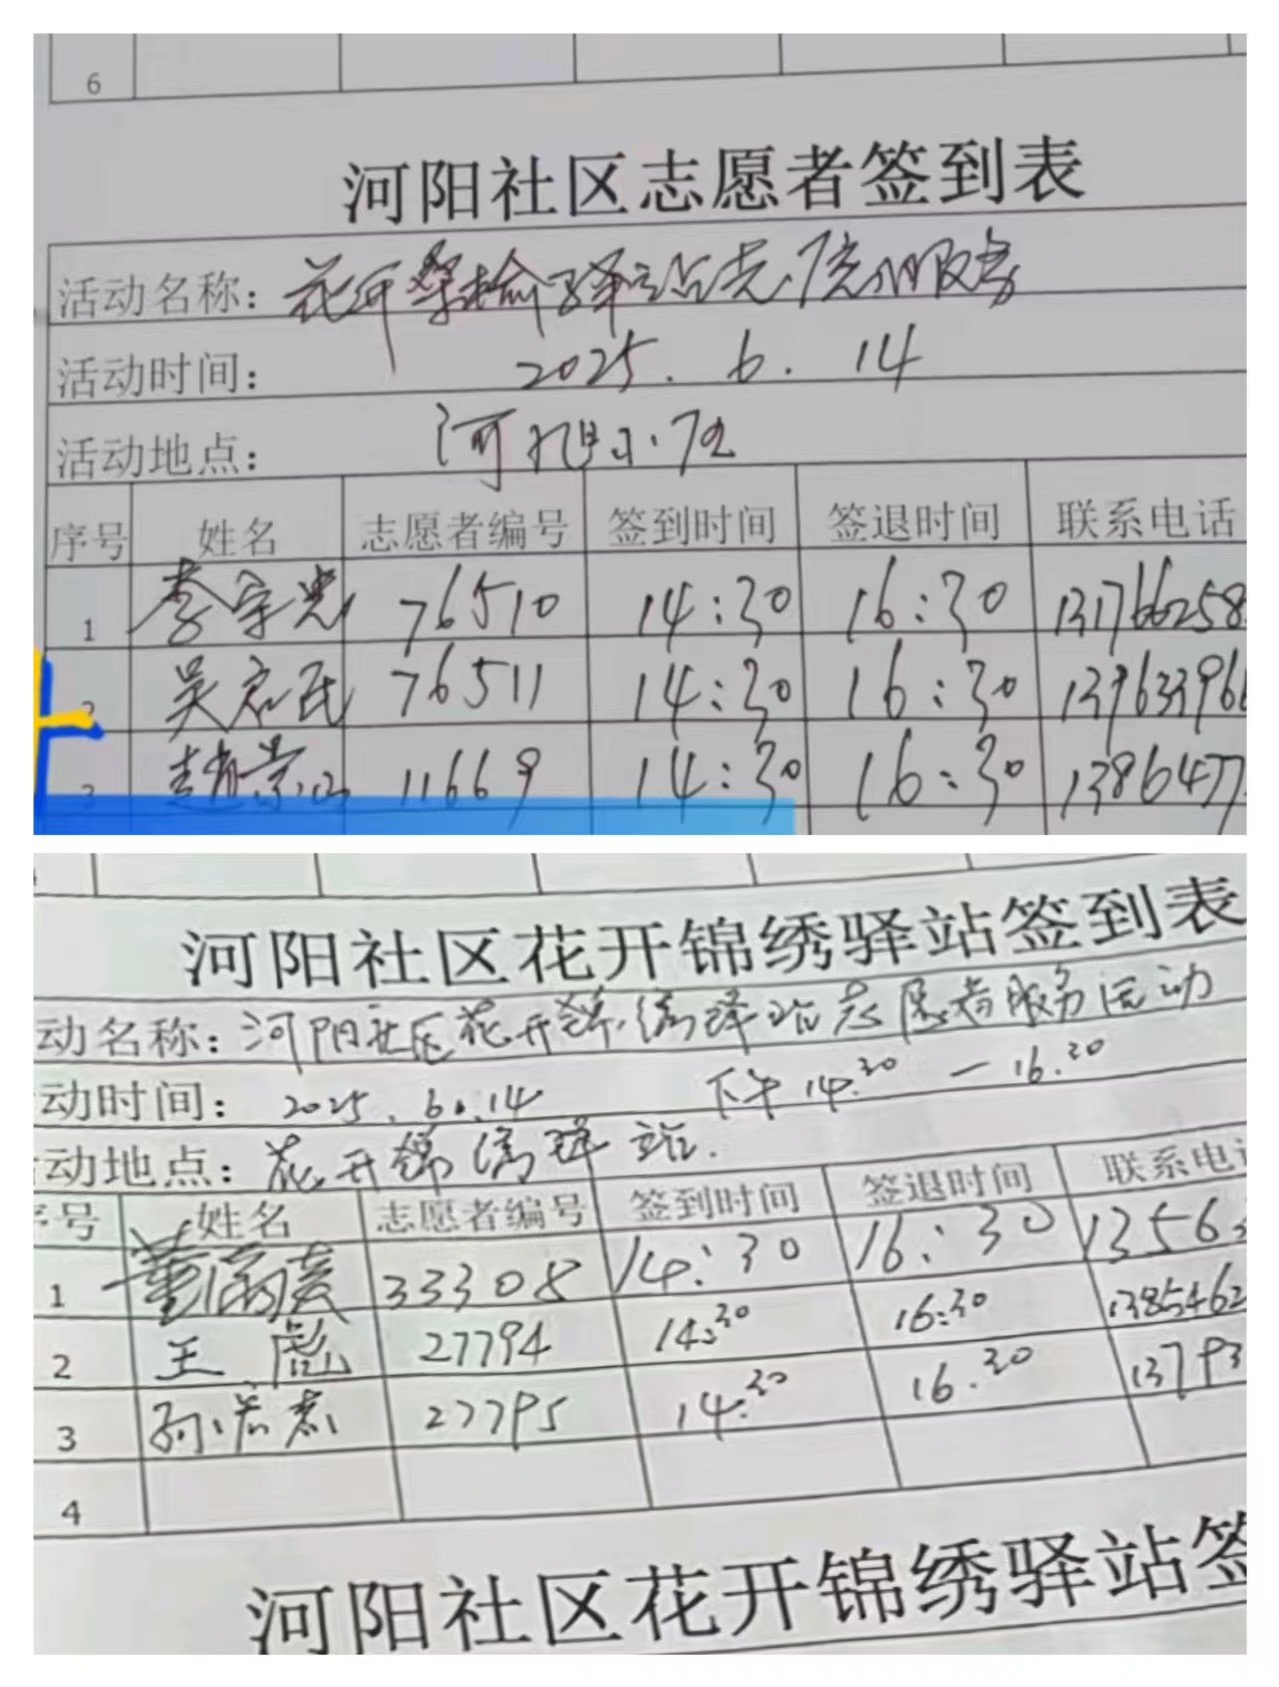 6
河阳社区志愿者签到表
活动名称：花开桑榆驿站志愿服务
活动时间： 2025. 6. 14
活动地点： 河阳小区
序号 姓名 志愿者编号 签到时间 签退时间 联系电话
1 李宗光 76510 14:30 16:30 131766258
2 吴启民 76511 14:30 16:30 139633966
3 赵崇山 11669 14:30 16:30 1386477
河阳社区花开锦绣驿站签到表
动名称：河阳社区花开锦绣驿站志愿者服务活动
动时间： 2025. 6.14 下午 14.30 — 16.30
动地点：花开锦绣驿站.
号 姓名 志愿者编号 签到时间 签退时间 联系电
1 董 33308 14:30 16:30 13563
2 王彪 27794 14:30 16:30 1385462
3 孙 27795 14:30 16.30 13793
4
河阳社区花开锦绣驿站签